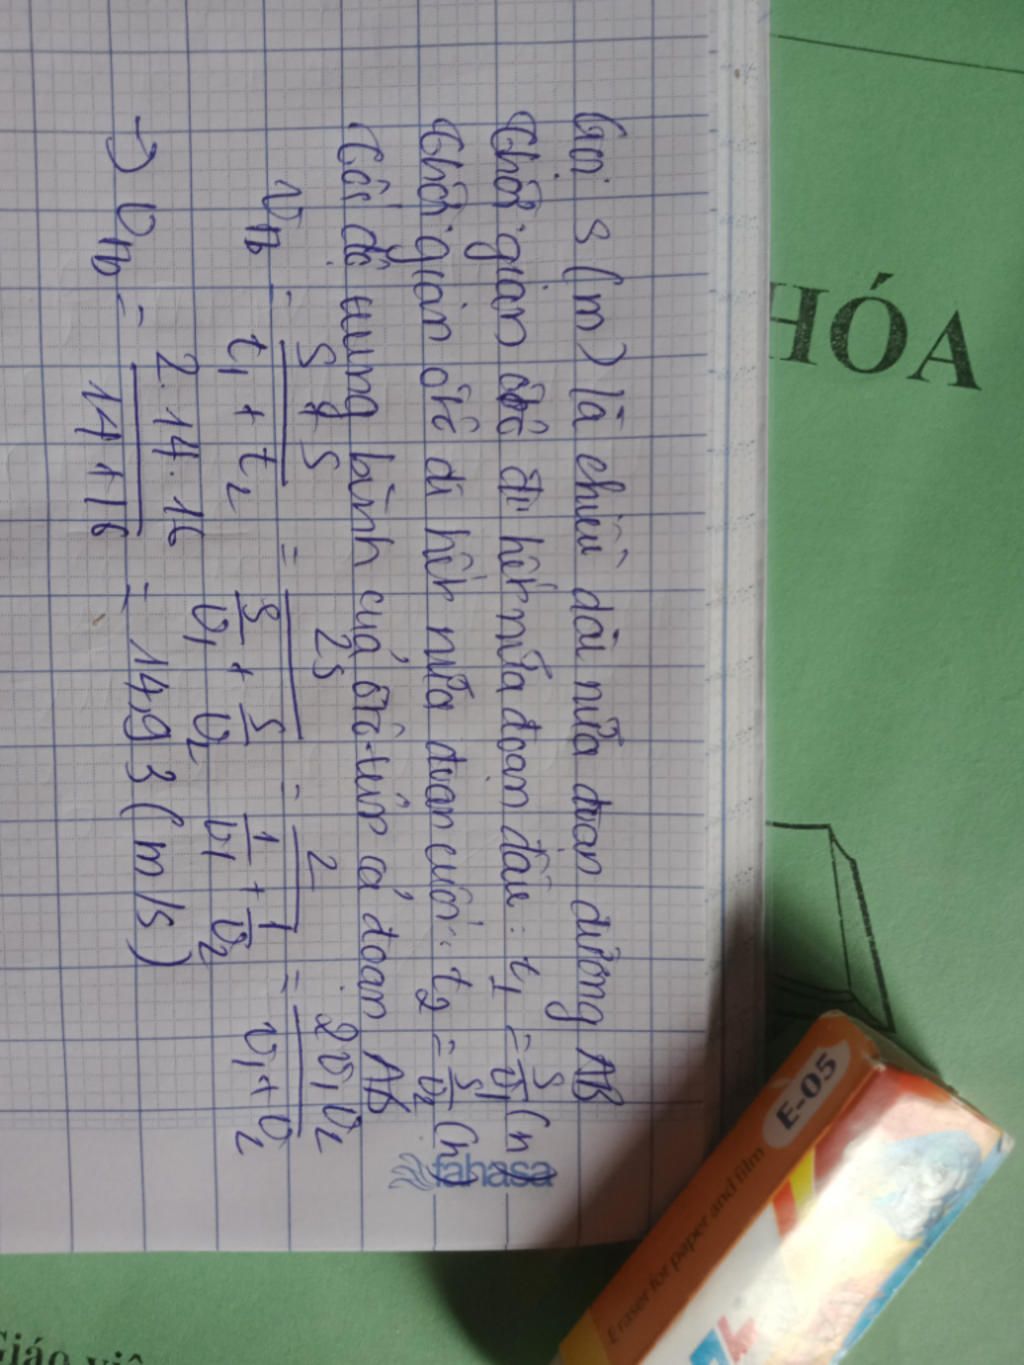 Gọi s (m) là chiều dài nửa đoạn đường AB
Thời gian ôtô đi hết nửa đoạn đầu: t₁ = s/v₁ (h
Thời gian ôtô đi hết nửa đoạn cuối: t₂ = s/v₂ (h
Tốc độ trung bình của ôtô trên cả đoạn AB
v_tb = (s + s)/(t₁ + t₂) = 2s/(s/v₁ + s/v₂) = 2/(1/v₁ + 1/v₂) = 2v₁v₂/(v₁ + v₂)
→ v_tb = (2.14.16)/(14 + 16) = 14,93 (m/s)
fahasa
HÓA
E-05
Eraser for paper and film
Giáo viê